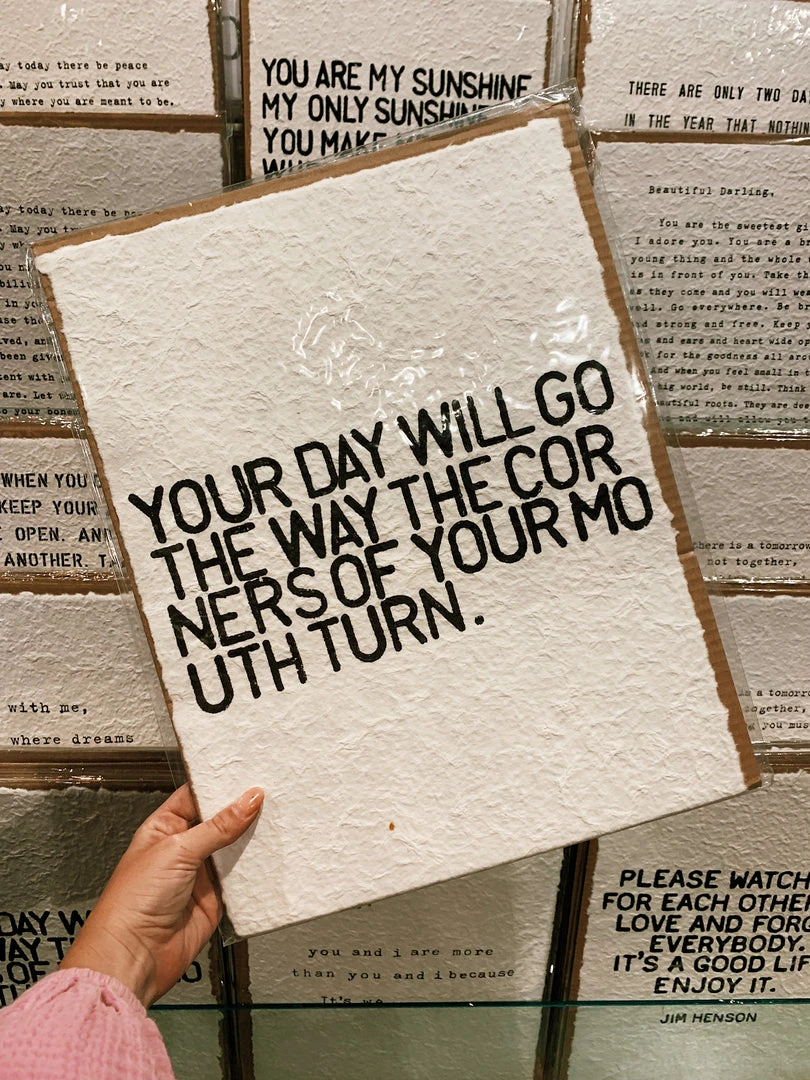 ay today there be peace
. May you trust that you are
y where you are meant to be.
YOU ARE MY SUNSHINE
MY ONLY SUNSHINE
YOU MAKE
THERE ARE ONLY TWO DA
IN THE YEAR THAT NOTHIN
ay today there be
. May you
Beautiful Darling,
You are the sweetest gi
I adore you. You are a br
young thing and the whole
is in front of you. Take th
as they come and you will wea
well. Go everywhere. Be br
nd strong and free. Keep
and ears and heart wide op
for the goodness all aro
And when you feel small in t
big world, be still. Think
autiful roots. They are dee
and will allow you
in yo
been give
tent with
are. Let
o your bones
YOUR DAY WILL GO
THE WAY THE COR
NERS OF YOUR MO
UTH TURN.
WHEN YOU
KEEP YOUR
E OPEN. AN
ANOTHER. T
here is a tomorrow
not together,
with me,
where dreams
is a tomorro
together,
you mus
DAY W
WAY T
OF
you and i are more
than you and i because
It's we
PLEASE WATCH
FOR EACH OTHER
LOVE AND FORG
EVERYBODY.
IT'S A GOOD LIF
ENJOY IT.
JIM HENSON